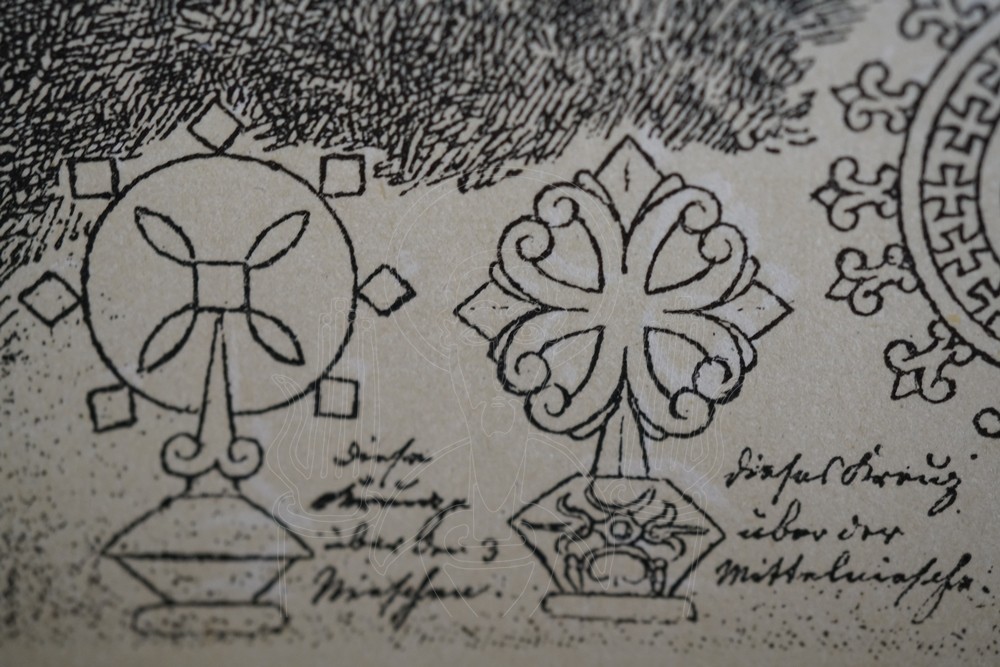 diese
Kreuze
über den 3
Nieschen.
dieses Kreuz
über der
Mittelniesche.